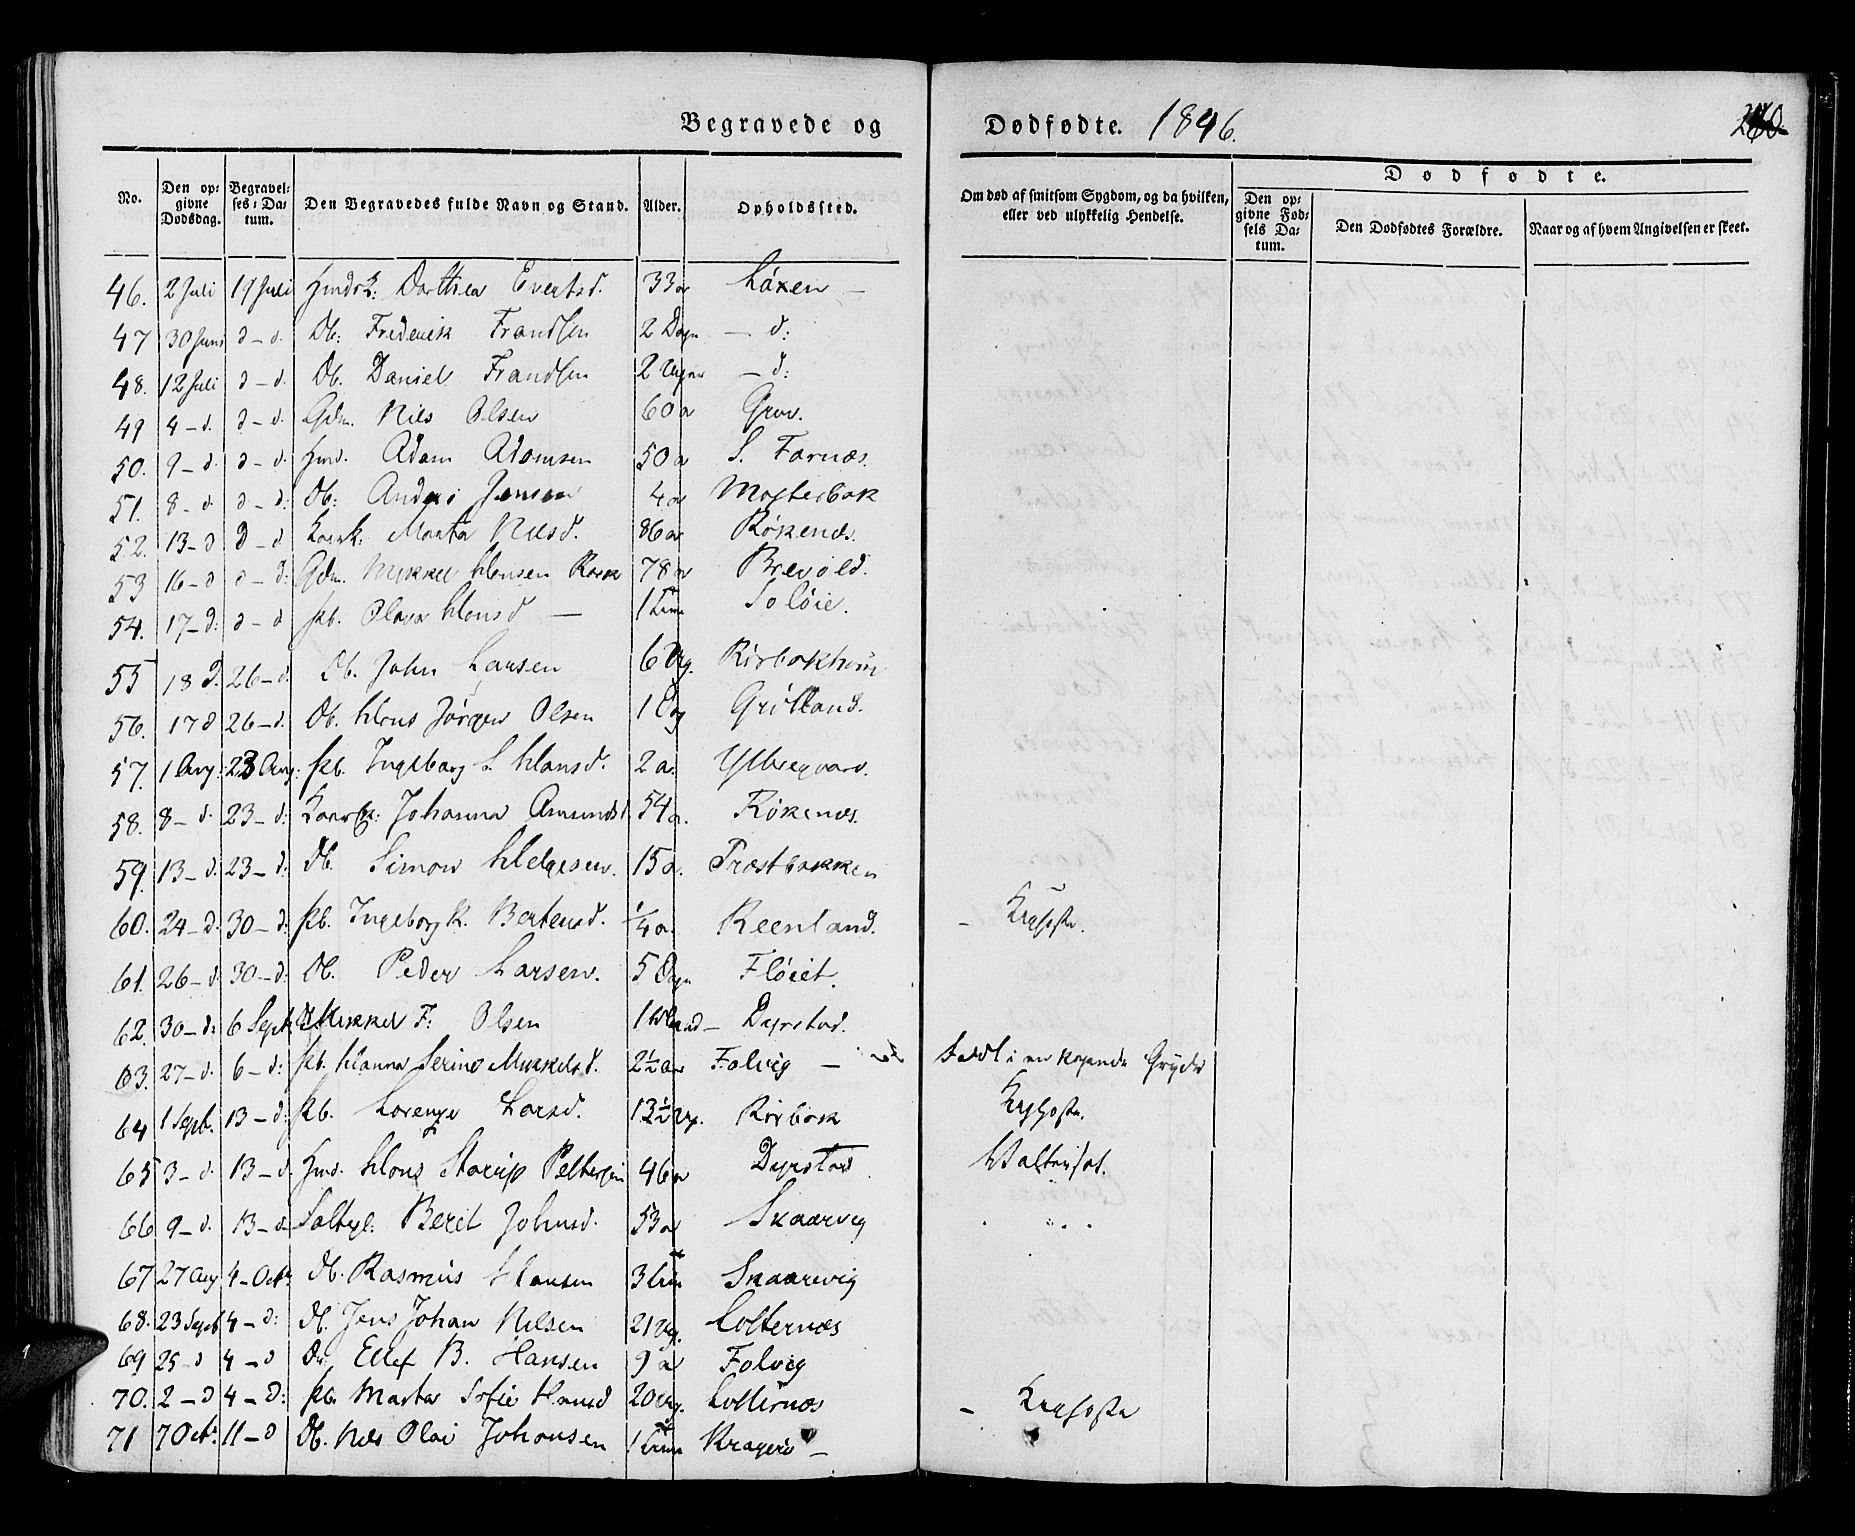 Begravede og Dødfødte. 1846.
No. Den opgivne Dødsdag. Begravelses-Datum. Den Begravedes fulde Navn og Stand. Alder. Opholdssted. Om død af smitsom Sygdom, og da hvilken, eller ved ulykkelig Hendelse. Dødfødte. Den opgivne Fødsels Datum. Den Dødfødtes Forældre. Naar og af hvem Angivelsen er skeet.
46. 2 Juli 19 Juli Dorthea Evertsd. 33 a Láxen —
47 30 Juni d – d. Db: Frederik Frandsen 2 Dage — d:
48. 12 Juli d – d. Db. Daniel Frandsen 2 Uger — d:
49 4 – d. d – d. Gdm. Nils Olsen 60 a Grov.
50. 9 – d. d – d. Hmd. Adam Adamsen 50 a S. Farnæs.
51. 8 – d. d – d: Db: Anders Jensen 4 a Mosterbak
52. 13 – d d – d Kaark: Marta Nilsd. 86 a Røkenæs.
53 16 – d d – d: Gdm. Mykkel Hansen 78 a Brevold.
54. 17 – d: d – d Pb. Olava Hansd — 1 Time Soløie.
55 18 d. 26 – d. Db. John Larsen 6 Ug. Rørbakhavn
56. 17 d 26 – d. Db. Hans Jørgen Olsen Grøtland.
57. 1 Aug: 23 Aug: Pb. Ingeborg S. Hansd. 2 a.
58. 8 – d. 23 – d: Johanna Amundsd. 54 a. Røkenæs.
59. 13 – d. 23 – d: Db. Simon Helgesen. 15 a. Trostbakken
60. 24 – d. 30 – d: Pb. Ingeborg K. Bertensd. 1/4 a. Reenland. – Kighoste.
61. 26 – d. 30 – d: Db. Peder Larsen. 5 Dage Fløiet.
62. 30 – d: 6 Sept Mikkel F: Olsen 1 Maaned – Dyrstad.
63. 27 – d. 6 – d: Pb. Hanna Serina Mikkelsd. 2½ a Folvig — faldt i en kogende Gryde
64 1 Sept. 13 – d: Pb. Lorenze Larsd. 13½ Ug. Rørbak Kighoste.
65 3 – d. 13 – d. Hmd. Hans Starup Pettersen 46 a Dyrstad Vattersot.
66 9 – d. 13 – d. Berit Johnsd. 53 a Skaarvig
67 27 Aug 4 – Octr Db. Rasmus Hansen 3 Skaarvig
68. 23 Sept 4 – d: Db. Jens Johan Nilsen 21 Ug. Lotternæs
69 25 – d 4 – d Db. Ellef B. Hansen 9 a Folvig
70. 2 – d 4 – d: Pb. Marta Sofie Hansd 20 Ug. Lotternæs – Kighoste
71 7 Octr 11 – d Db. Nils Olai Johansen 1 Time Kragerø —